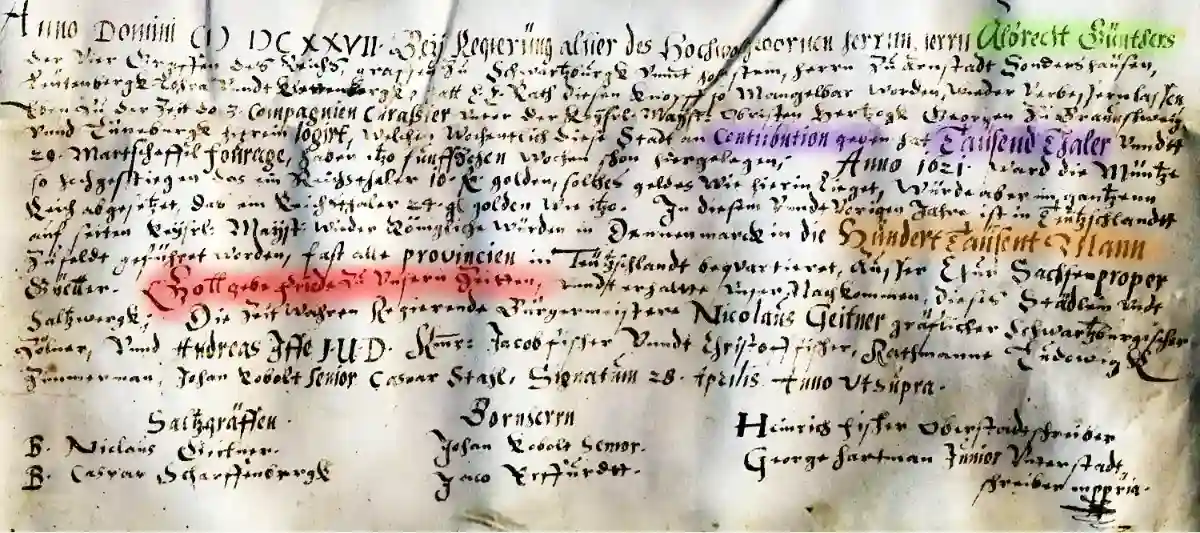 Anno Domini (I) IDCXXVII. Beÿ Regierüng alhier des Hochwolgebornen Herrnn, Herrn Albrecht Günthers
der Vier Graffen des Reichs, graffen zu Schwartzburgk Vnndt Honstein, Herrn zu Arnstadt Sondershausen,
Leütenbergk Lohra Vnndt Klettenbergk, hatt E. E. Rath diesen Knopff so Mangelbar worden, wieder Verbessern lassen
Eben zu der Zeit do 3. Compagnien Curassier vnter der Keÿserl. Maÿst: Obristen Hertzogk Georgen zu Braunschweig
Vnnd Lüneburgk herein logirt, welchen Wochentlich diese Stadt an Contribution geben hat Tausend Thaler Vnndt
20. Martscheffil fourage, haben itzo funffzehen wochen schon hiergelegen, Anno 1621. ward die Müntze
so hochgestiegen das ein Reichsthaler 10. fl golden, solches geldes wie hierin lieget, würde aber im gantzenn
Reich abgesetzet, das ein Reichsthaler 24. gl golden wie itzo. In diesem Vnndt Vorigen Jahre ist in Teützschlandtt
auf seiten Keÿserl: Maÿst: wieder Königliche würden in Dennenmarck in die Hündert Taüsent Mann
Zufeldt geführet worden, fast alle provincien in Teützschlandt bequartieret, Ausser Chur Sachsen proper
Völcker. Gott gebe friede zu Vnsern Zeitten, Vnndt erhaltte Vnser Nachkommen, dieses Städlein Vndt
Saltzwergk, Die Zeit wahren Regierende Bürgermeistere Nicolaüs Geitner gräflicher Schwartzburgischer
Zölner, Vnnd Andreas Iffe J.U.D. Kmr: Jacob fischer Vnndt Christoff fischer, Rathmanne Ludowig K
Zimmerman, Johan Kobolt Senior Caspar Stahl, Signatum 28. Aprilis Anno Vt supra.
Saltzgräffen.
B. Niclaüs Geitner.
B. Caspar Scharffenbergk
Bornherrn
Johan Kobolt Senior.
Jaco Erffürdtt.
Heinrich fischer Oberstadtschreiber
George Hartman Junior Vnterstadt,
schreiber mppria.